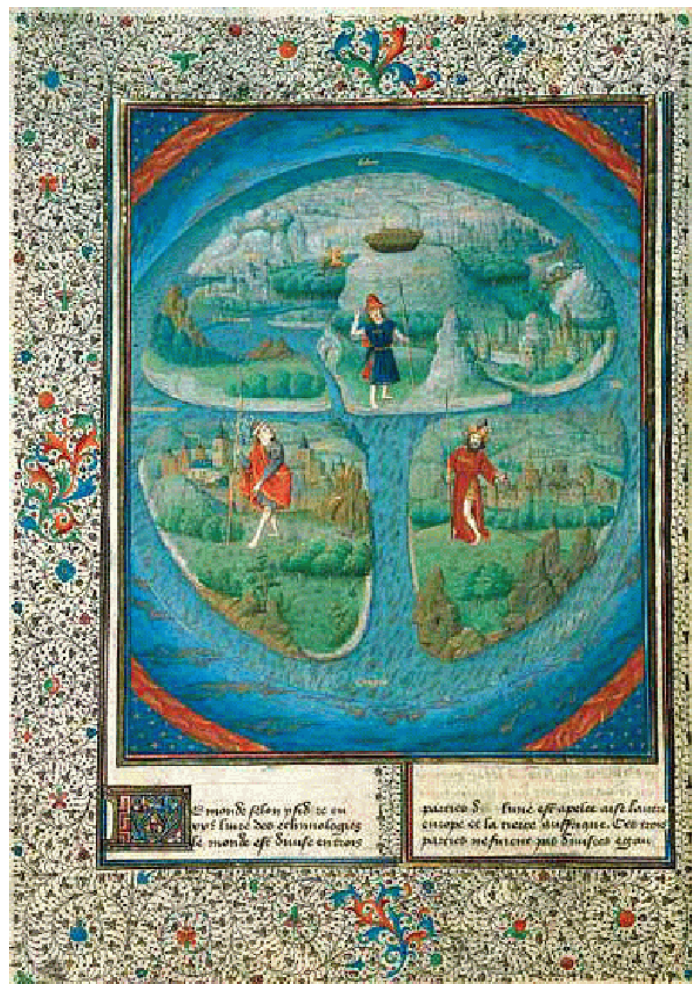 e monde selon ysid re ou
liure des ethimologies
le monde est diuise en trois
parties dont lune est apelee asie lautre
europe et la tierce auffrique. Ces trois
parties ne furent pas diuisees